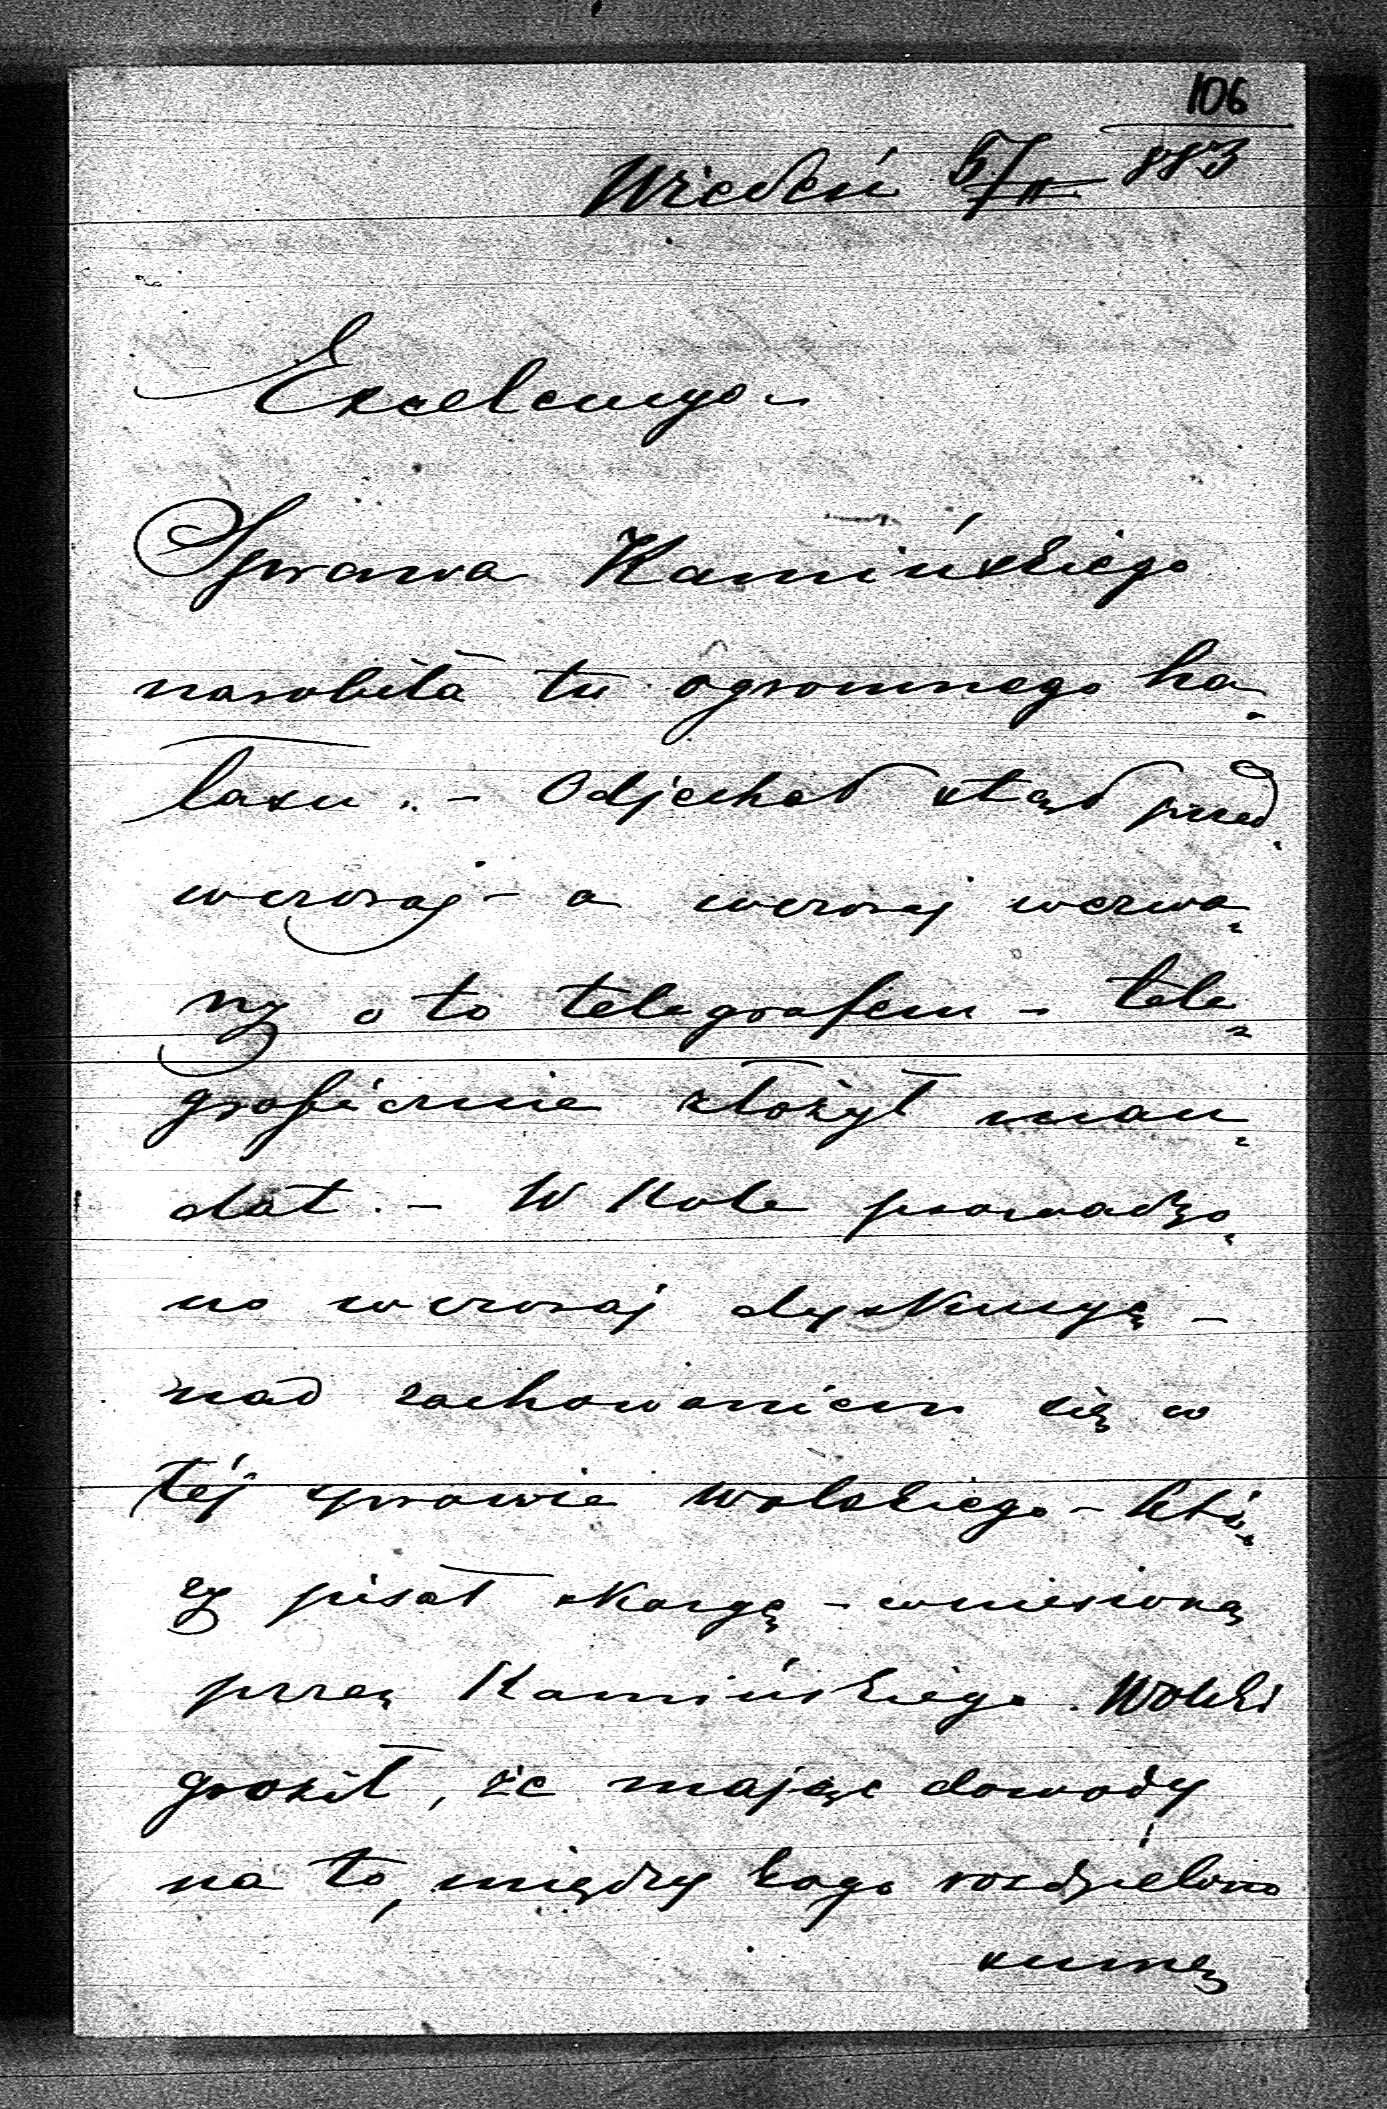 106
Wiedeń 5/II 883
Excelencyo
Sprawa Kamińskiego
narobiła tu ogromnego ha-
łasu. - Odjechał ztąd przed-
wczoraj - a wczoraj wezwa-
ny o to telegrafem - tele-
graficznie złożył man-
dat. - W Kole prowadzo-
no wczoraj dyskusyę -
nad zachowaniem się w
téj sprawie Wolskiego - któ-
ry pisał skargę - wniesioną
przez Kamińskiego. Wolski
groził, że mając dowody
na to, między kogo rozdzielono
sumę